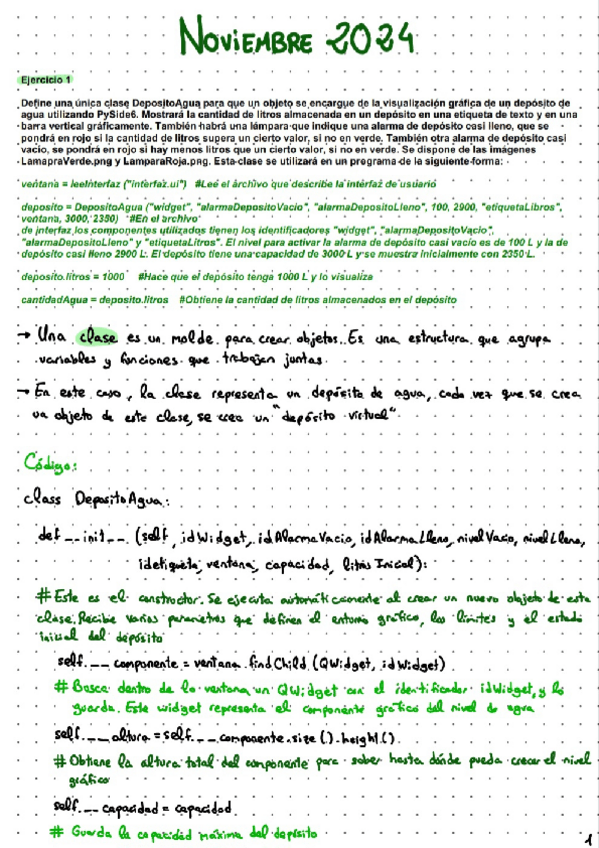 NOVIEMBRE 2024
Ejercicio 1
Define una única clase DepositoAgua para que un objeto se encargue de la visualización gráfica de un depósito de
agua utilizando PySide6. Mostrará la cantidad de litros almacenada en un depósito en una etiqueta de texto y en una
barra vertical gráficamente. También habrá una lámpara que indique una alarma de depósito casi lleno, que se
pondrá en rojo si la cantidad de litros supera un cierto valor, si no en verde. También otra alarma de depósito casi
vacío, se pondrá en rojo si hay menos litros que un cierto valor, si no en verde. Se dispone de las imágenes
LamapraVerde.png y LamparaRoja.png. Esta clase se utilizará en un programa de la siguiente forma:
ventana = leeInterfaz ("interfaz.ui") #Leé el archivo que describe la interfaz de usuario
deposito = DepositoAgua ("widget", "alarmaDepositoVacio", "alarmaDepositoLleno", 100, 2900, "etiquetaLibros",
ventana, 3000, 2350) #En el archivo
de interfaz los componentes utilizados tienen los identificadores "widget", "alarmaDepositoVacio",
"alarmaDepositoLleno" y "etiquetaLitros". El nivel para activar la alarma de depósito casi vacío es de 100 L y la de
depósito casi lleno 2900 L. El depósito tiene una capacidad de 3000 L y se muestra inicialmente con 2350 L.
deposito.litros = 1000 #Hace que el depósito tenga 1000 L y lo visualiza
cantidadAgua = deposito.litros #Obtiene la cantidad de litros almacenados en el depósito
→ Una clase es un molde para crear objetos. Es una estructura que agrupa
variables y funciones que trabajan juntas.
→ En este caso, la clase representa un depósito de agua, cada vez que se crea
un objeto de este clase, se crea un "depósito virtual".
Código:
class DepositoAgua:
def __init__ (self, idWidget, idAlarmaVacio, idAlarmaLleno, nivelVacio, nivelLleno,
idetiqueta, ventana, capacidad, litrosInicial):
# Este es el constructor. Se ejecuta automáticamente al crear un nuevo objeto de esta
clase. Recibe varios parámetros que definen el entorno gráfico, los límites y el estado
inicial del depósito
self.__componente = ventana.findChild (QWidget, idWidget)
# Busca dentro de la ventana un QWidget con el identificador idWidget, y lo
guarda. Este widget representa el componente gráfico del nivel de agua
self.__altura = self.__componente.size().height()
# Obtiene la altura total del componente para saber hasta dónde pueda crecer el nivel
gráfico
self.__capacidad = capacidad
# Guarda la capacidad máxima del depósito
1